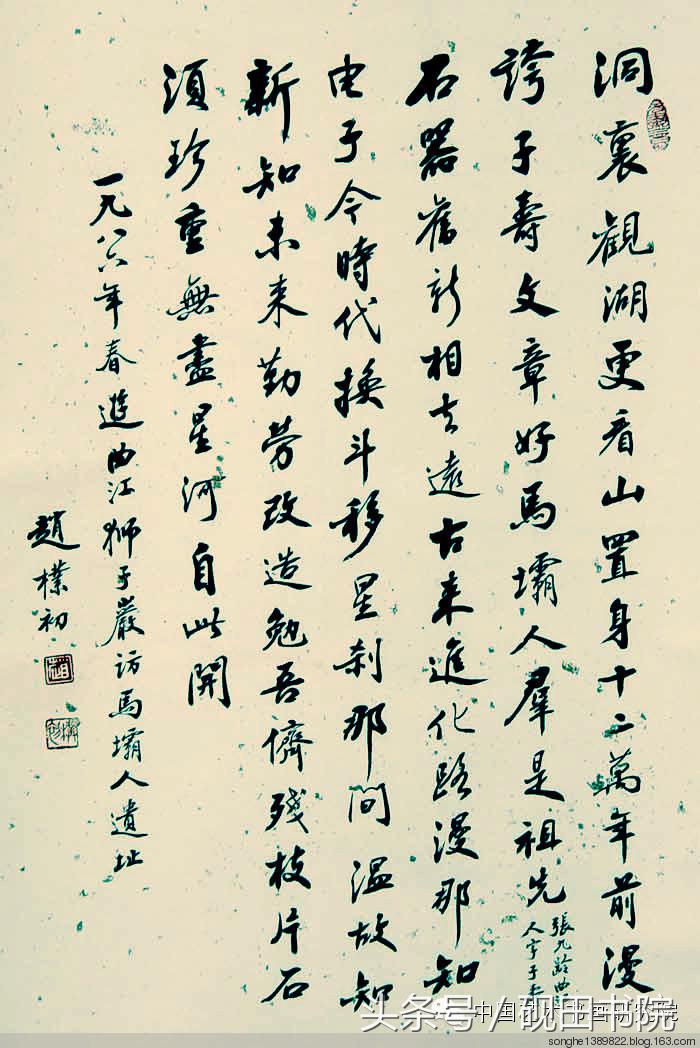 洞裏觀湖更看山置身十二萬年前漫
誇子壽文章好馬壩人羣是祖先
張九齡曲
人字子壽
石器舊新相去遠古來進化路漫那知
电子今時代換斗移星刹那间温故知
新知未來勤劳改造勉吾儕殘枝片石
須珍重無盡星河自此開
一九八六年春遊曲江狮子巖访馬壩人遺址
趙樸初
趙
头条号/砚田书院
songhe1389822.blog.163.com